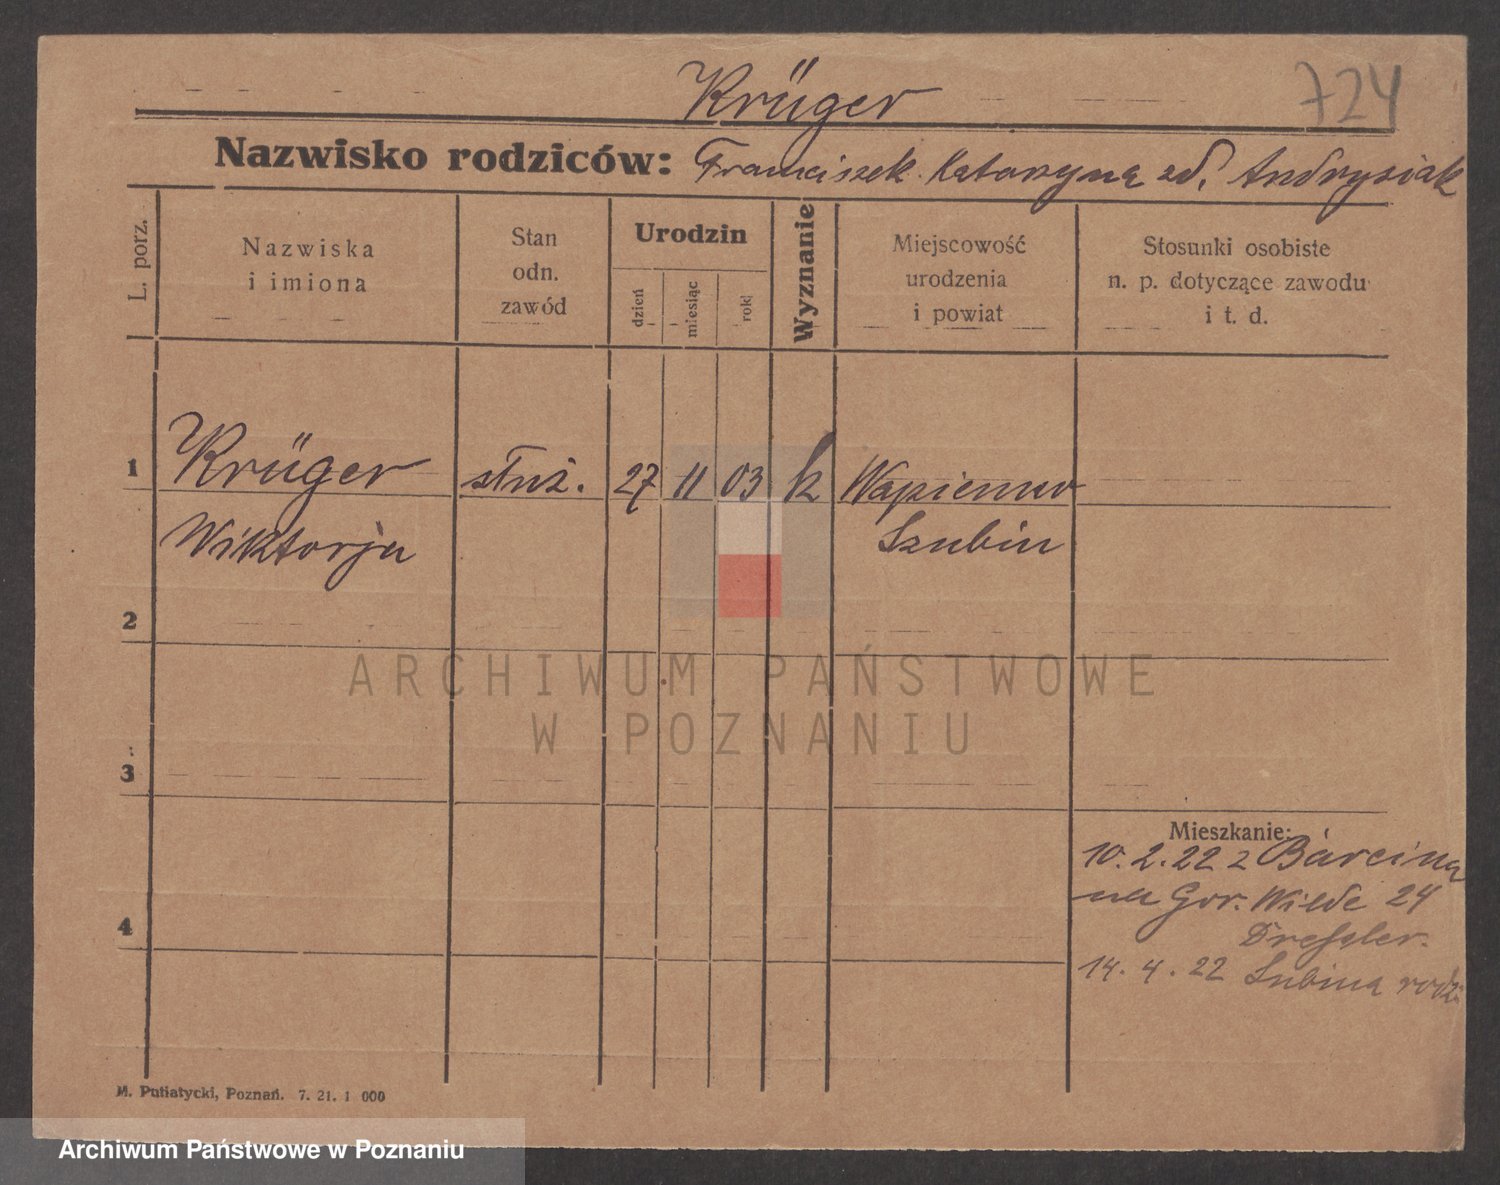 Krüger
724
Nazwisko rodziców: Franciszek Katarzyna zd. Andrysiak
L. porz.
Nazwiska
i imiona
Stan
odn.
zawód
Urodzin
dzień
miesiąc
rok
Wyznanie
Miejscowość
urodzenia
i powiat
Stosunki osobiste
n. p. dotyczące zawodu
i t. d.
1 Krüger służ. 27 11 03 k Wapienno
Wiktorja Szubin
2
3
4
Mieszkanie:
10.2.22 z Barcina
na Gór. Wilde 24
Dressler.
14.4.22 rodz.
M. Putiatycki, Poznań. 7. 21. 1 000
ARCHIWUM PAŃSTWOWE
W POZNANIU
Archiwum Państwowe w Poznaniu